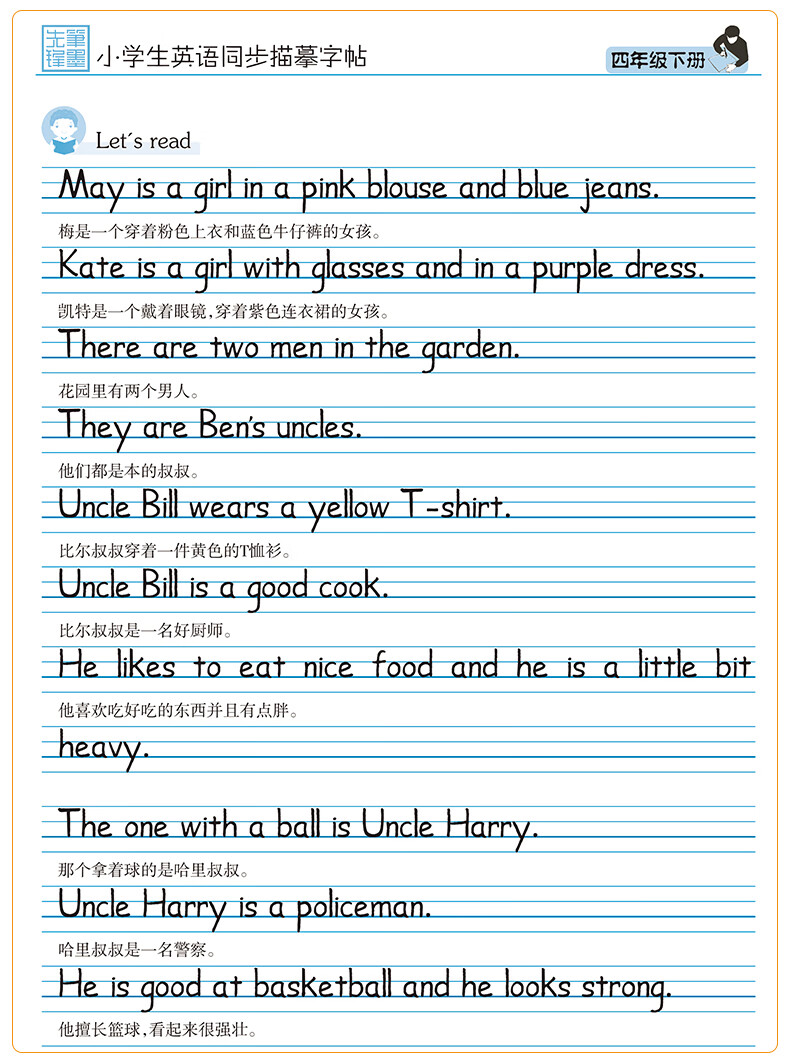 先锋笔墨
小学生英语同步描摹字帖
四年级下册
Let´s read
May is a girl in a pink blouse and blue jeans.
梅是一个穿着粉色上衣和蓝色牛仔裤的女孩。
Kate is a girl with glasses and in a purple dress.
凯特是一个戴着眼镜,穿着紫色连衣裙的女孩。
There are two men in the garden.
花园里有两个男人。
They are Ben's uncles.
他们都是本的叔叔。
Uncle Bill wears a yellow T-shirt.
比尔叔叔穿着一件黄色的T恤衫。
Uncle Bill is a good cook.
比尔叔叔是一名好厨师。
He likes to eat nice food and he is a little bit
他喜欢吃好吃的东西并且有点胖。
heavy.
The one with a ball is Uncle Harry.
那个拿着球的是哈里叔叔。
Uncle Harry is a policeman.
哈里叔叔是一名警察。
He is good at basketball and he looks strong.
他擅长篮球,看起来很强壮。